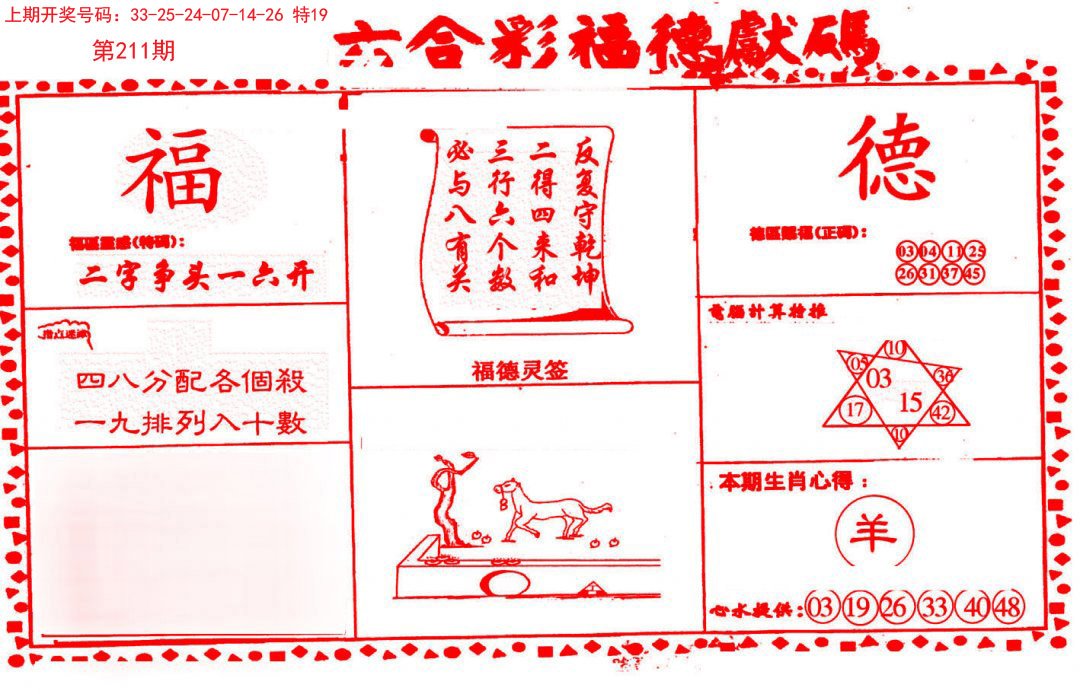 上期开奖号码：33-25-24-07-14-26 特19
第211期
六合彩福德獻碼
福
福區靈感(特碼)：
二字争头一六开
指点迷津
四八分配各個殺
一九排列入十數
反复守乾坤
二得四来和
三行六个数
必与八有关
福德灵签
德
德區賜福(正碼)：
03 04 11 25
26 31 37 45
電腦計算特推
10
05 03 36
17 15 42
10
本期生肖心得：
羊
心水提供：03 19 26 33 40 48